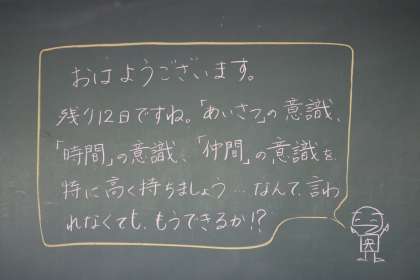 おはようございます。
残り12日ですね。「あいさつ」の意識、
「時間」の意識、「仲間」の意識を
特に高く持ちましょう…なんて、言わ
れなくても、もうできるか!?